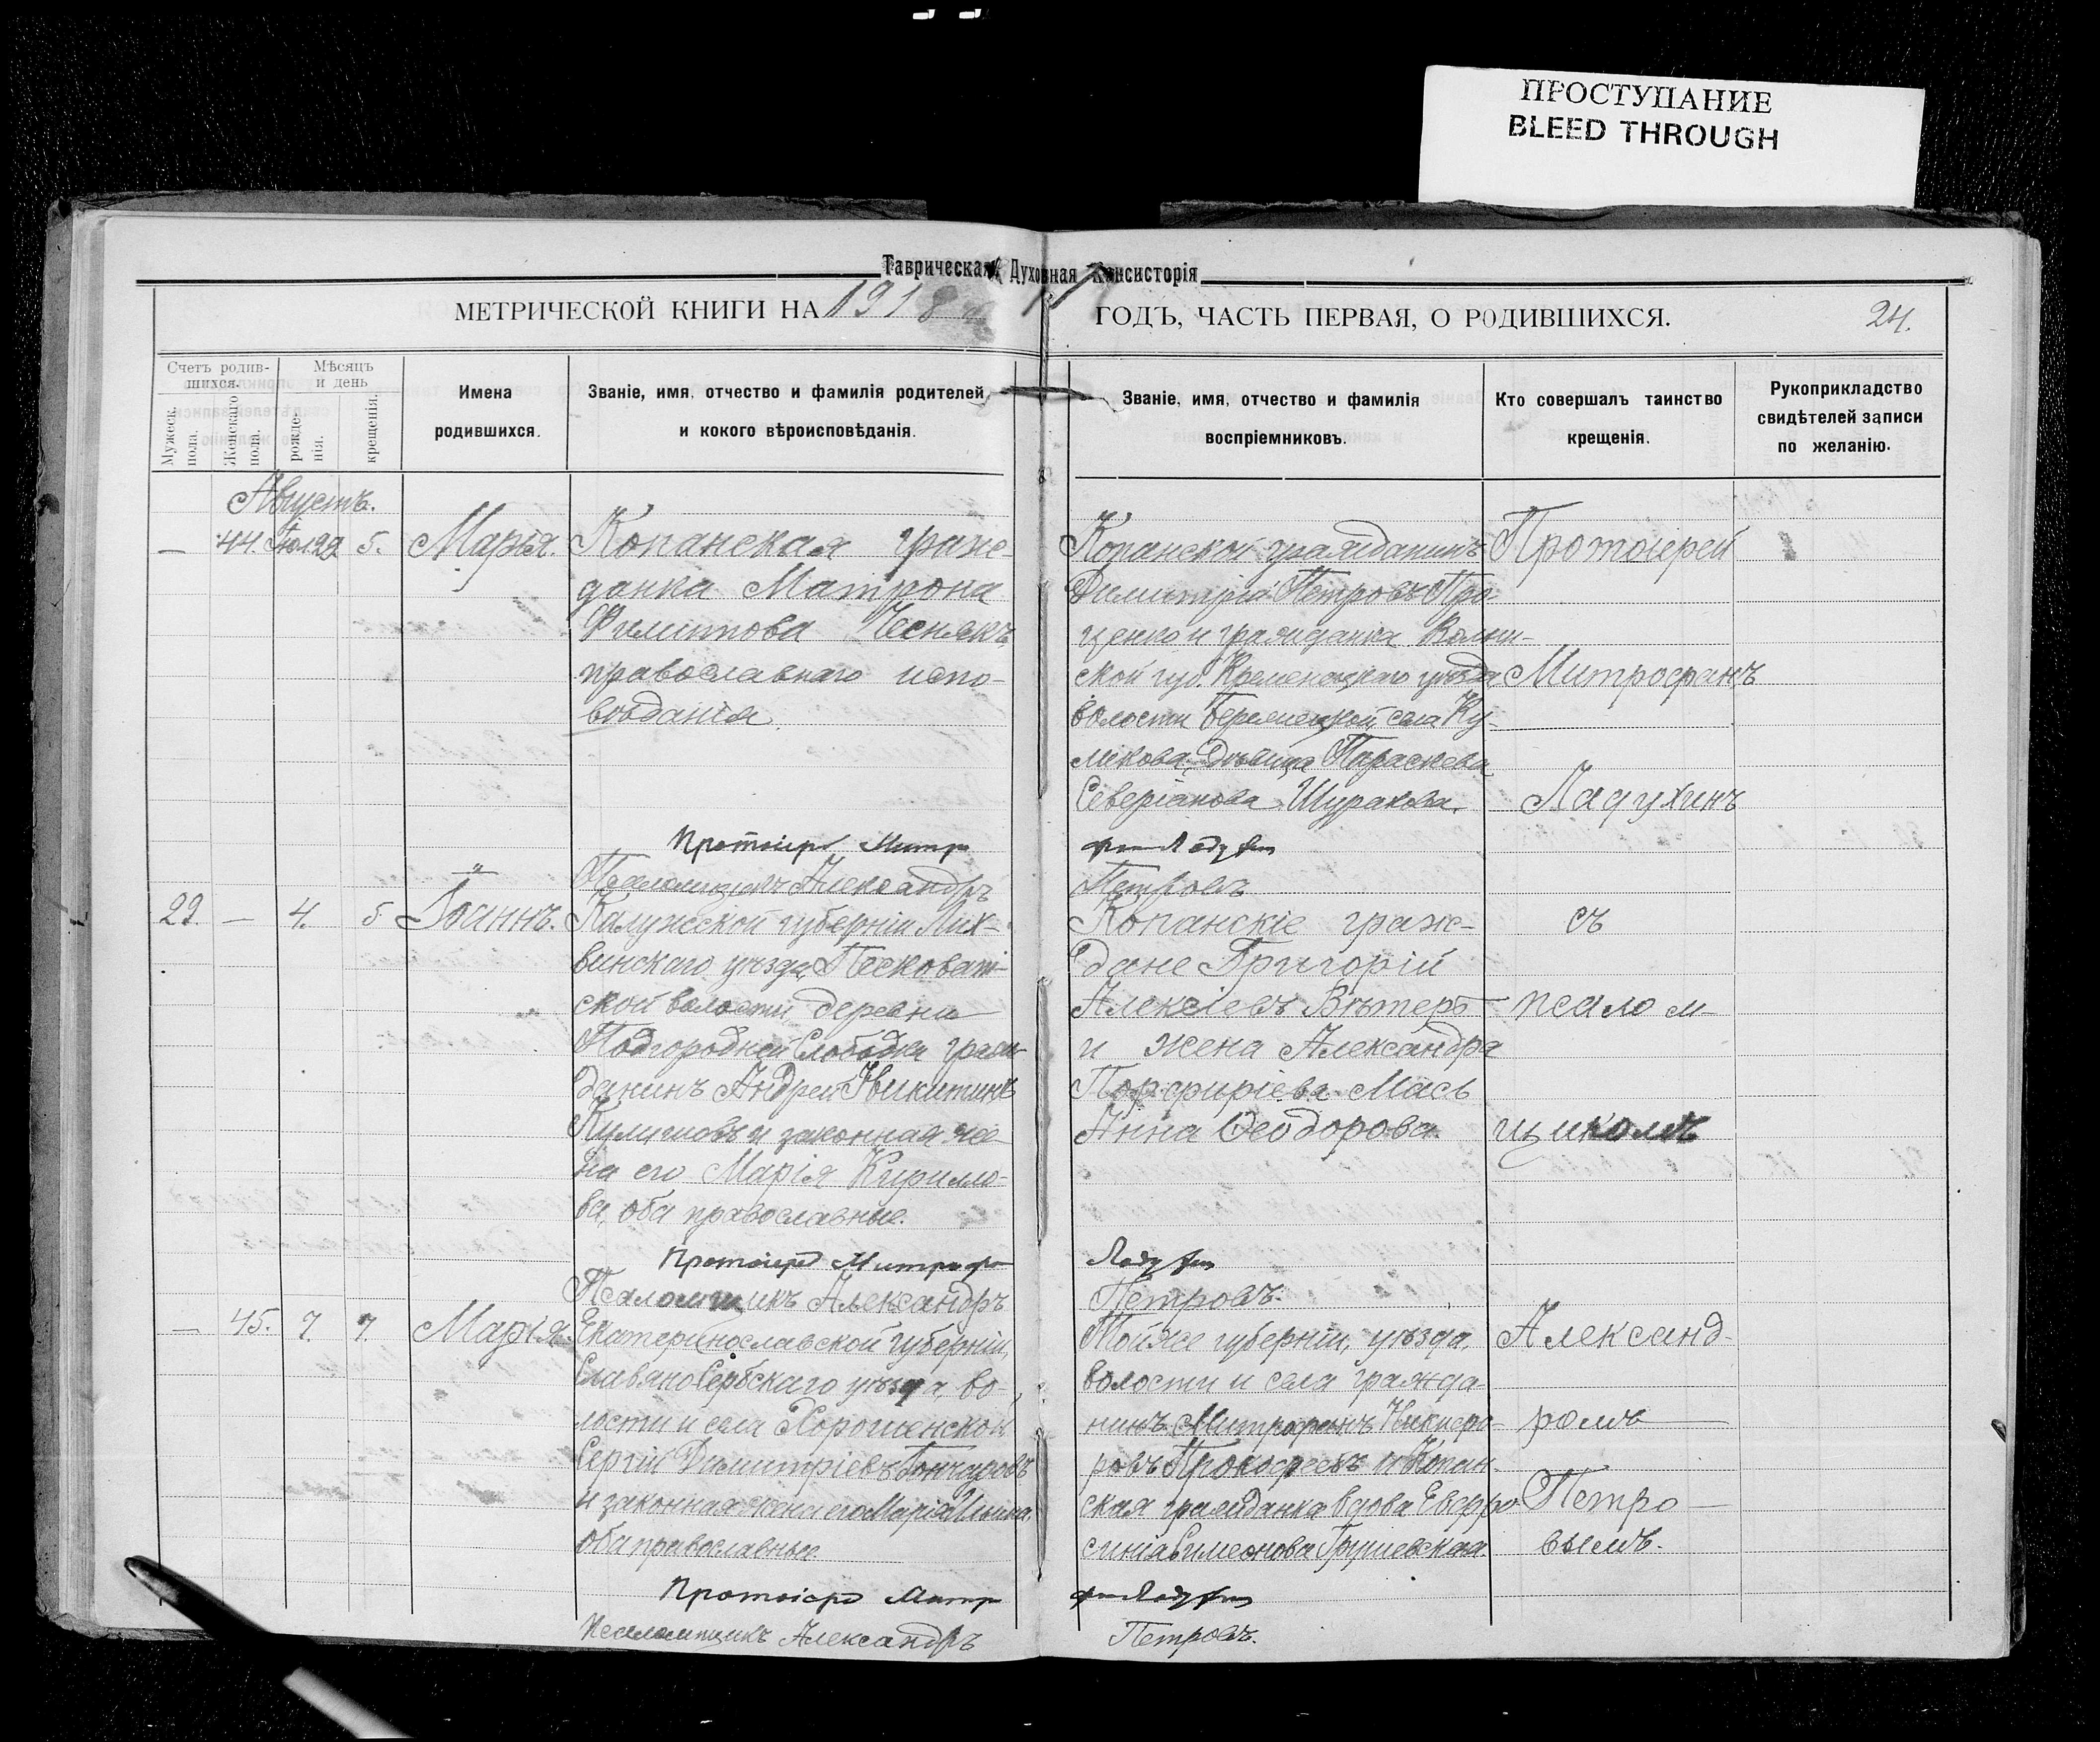 ПРОСТУПАНИЕ
BLEED THROUGH
Таврическая Духовная Консисторія
МЕТРИЧЕСКОЙ КНИГИ НА 1918
ГОДЪ, ЧАСТЬ ПЕРВАЯ, О РОДИВШИХСЯ.
24.
Счетъ родив-
шихся.
Мужеск.
пола.
Женскаго
пола.
Мѣсяцъ
и день
рожде-
нія.
крещенія.
Имена
родившихся.
Званіе, имя, отчество и фамилія родителей,
и кокого вѣроисповѣданія.
Званіе, имя, отчество и фамилія
воспріемниковъ.
Кто совершалъ таинство
крещенія.
Рукоприкладство
свидѣтелей записи
по желанію.
Августъ.
— 44. Іюл. 29 5. Марія.
Копанская граж-
данка Матрона
Филиппова Чеснякъ,
православнаго испо-
вѣданія.
Копанской гражданинъ
Димитрій Петровъ Про-
ценко и гражданка Волын-
ской губ. Кременецкаго уѣзда
волости села Ку-
ликова, дѣвица Параскева
Северіанова Шуракова.
Протоіерей
Митрофанъ
Ладухинъ
Протоіерей Митро
фан Ладухин
Псаломщикъ Александръ
Петровъ
22. — 4. 5 Іоаннъ.
Калужской губерніи Лих-
винскаго уѣзда, Песковат-
ской волости, деревни
Подгородней Слободки граж-
данинъ Андрей Никитинъ
и законная же-
на его Марія Кирилло-
ва, оба православные.
Копанскіе граж-
дане Григорій
Алексіевъ Вѣтеръ
и жена Александра
Порфиріева Мась
Анна Ѳеодорова.
съ
псалом-
щикомъ
Протоіерей Митрофан
Ладухин
Псаломщикъ Александръ
Петровъ.
— 45. 7. 7. Марія.
Екатеринославской губерніи,
СлавяноСербскаго уѣзда, во-
лости и села Хорошенской
Сергій Димитріевъ Гончаровъ
и законная жена его Марія Ильина.
оба православные.
Той же губерніи, уѣзда,
волости и села гражда-
нинъ Митрофанъ Никифо-
ровъ Прокофьевъ и Копан-
ская гражданка вдова Евфро-
синія Симеонова Грушевская.
Александ-
ромъ
Петро-
вымъ.
Протоіерей Митро
фан Ладухин
Псаломщикъ Александръ
Петровъ.